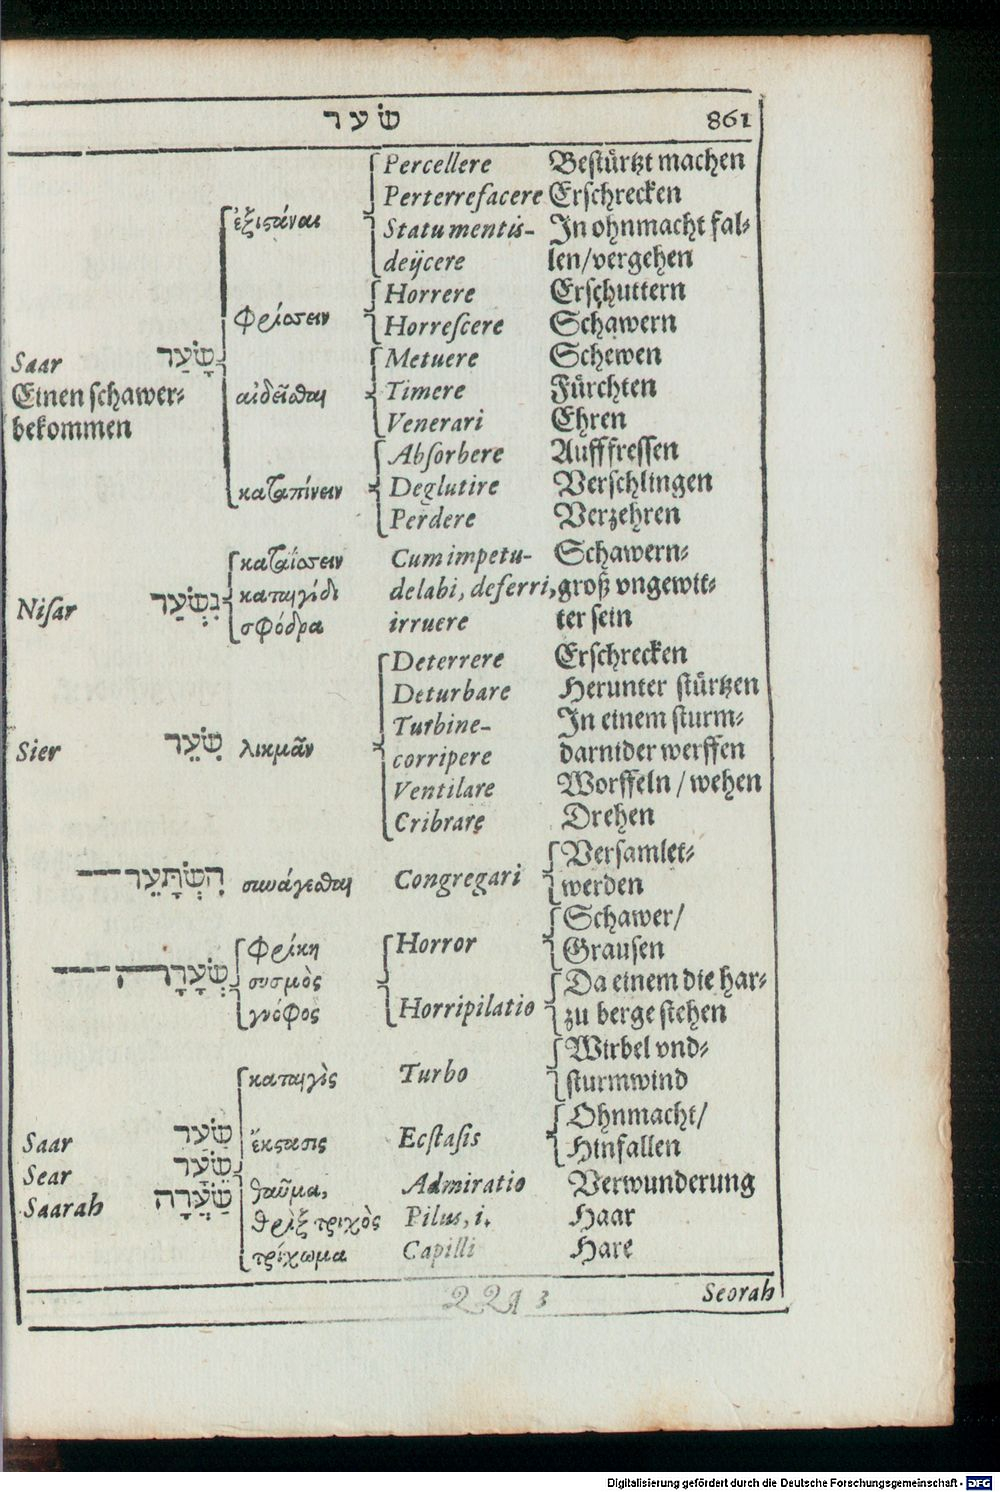 שׂער 861
Percellere Bestürtzt machen
Perterrefacere Erschrecken
ἐξιςάναι Statu mentis- In ohnmacht fal-
deijcere len/vergehen
Horrere Erschuttern
φρίσσειν Horrescere Schawern
Saar שָׂעַר Metuere Schewen
Einen schawer- αἰδεῖσθαι Timere Fürchten
bekommen Venerari Ehren
Absorbere Aufffressen
καταπίνειν Deglutire Verschlingen
Perdere Verzehren
καταΐσσειν Cum impetu- Schawern-
Nisar נִשְׂעַר καταιγίδι delabi, deferri, groß vngewit-
σφόδρα irruere ter sein
Deterrere Erschrecken
Deturbare Herunter stürtzen
Turbine- In einem sturm-
Sier שִׂעֵר λικμᾶν corripere darnider werffen
Ventilare Worffeln / wehen
Cribrare Drehen
Versamlet-
הִשְׂתָּעֵר συνάγεσθαι Congregari werden
Schawer/
φρίκη Horror Grausen
שְׂעָרָה συσμὸς Da einem die har-
γνόφος Horripilatio zu berge stehen
Wirbel vnd-
καταιγὶς Turbo sturmwind
Ohnmacht/
Saar שַׂעַר ἔκςασις Ecstasis Hinfallen
Sear שֵׂעָר θαῦμα, Admiratio Verwunderung
Saarah שַׂעֲרָה θρὶξ τριχὸς Pilus, i. Haar
τρίχωμα Capilli Hare
3 Seorah
Digitalisierung gefördert durch die Deutsche Forschungsgemeinschaft - DFG